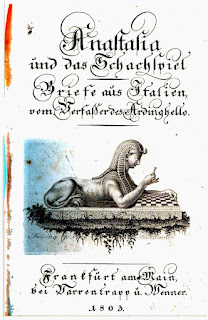 Anastasia
und das Schachspiel
Briefe aus Italien,
vom Verfasser des Ardinghello.
Frankfurt am Main,
bei Varrentrapp u. Wenner.
1803.